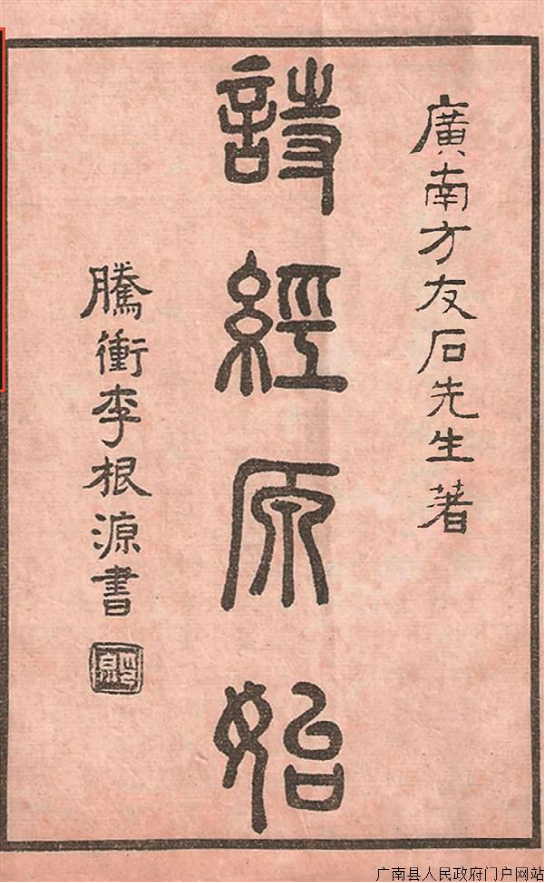 廣南方友石先生著
詩經原始
騰衝李根源書
广南县人民政府门户网站